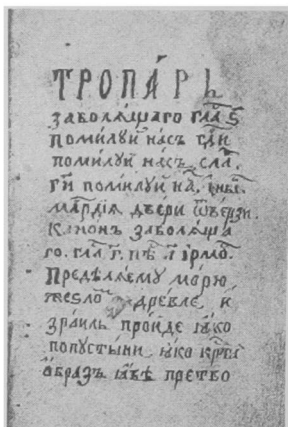 ТРОПА́РЬ
заболѧ́щаго гла̑ ѕ҃
поми́луй на́съ гд҇и
поми́луй на́съ, сла̑.
гд҇и поми́луй
двє́ри ѿвє́рзи.
Кано́нъ заболѧ́ща
го. гла̑ г҃. пѣ̑ а҃ і҆рмо̑.
Предѣлѧ́ему мо́рю
жезло̀ древле, и҆
зра́иль про́йде ꙗ҆́ко
попусты́ни ꙗ҆́ко крⷭ҇та
ѻ҆́бразъ ꙗ҆́вѣ претво